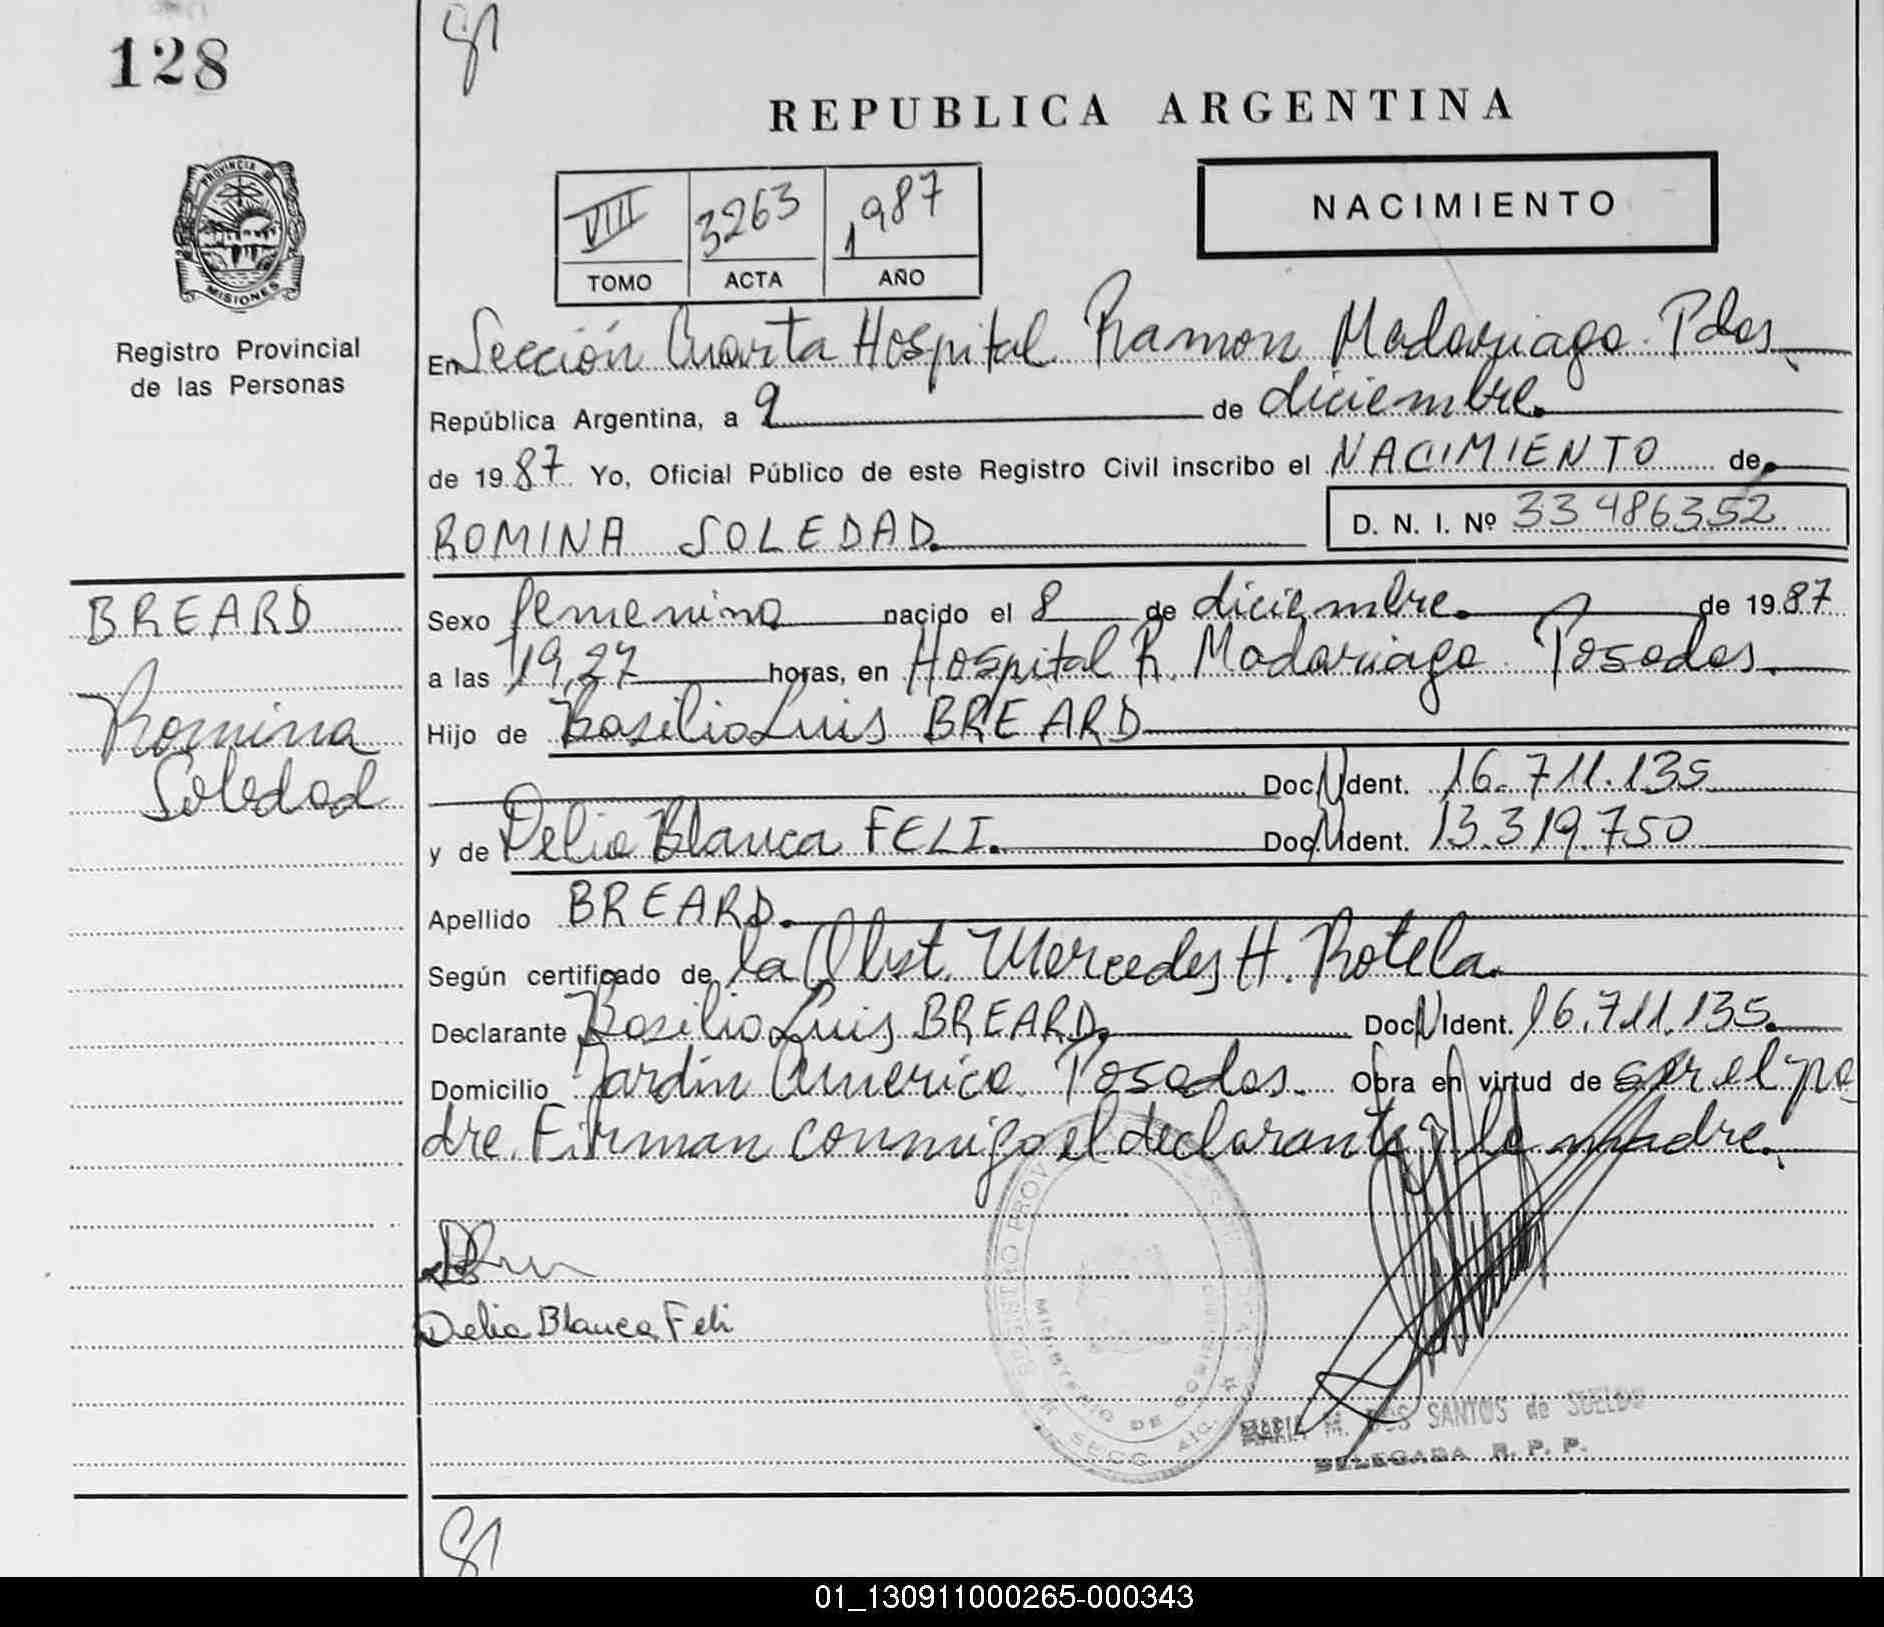 128
81
REPUBLICA ARGENTINA
VIII 3263 1987
TOMO ACTA AÑO
NACIMIENTO
PROVINCIA DE
MISIONES
Registro Provincial
de las Personas
En Sección Cuarta Hospital Ramon Madariaga. Pdas.
República Argentina, a 9 de diciembre.
de 1987 Yo, Oficial Público de este Registro Civil inscribo el NACIMIENTO de
ROMINA SOLEDAD. D. N. I. Nº 33486352
BREARD
Romina
Soledad
Sexo femenino nacido el 8 de diciembre. de 1987
a las 19,27 horas, en Hospital R. Madariaga Posadas.
Hijo de Basilio Luis BREARD
Doc. N Ident. 16.711.135
y de Delia Blanca FELI. Doc. N Ident. 13.319.750
Apellido BREARD.
Según certificado de la Obst. Mercedes H. Rotela.
Declarante Basilio Luis BREARD. Doc. N Ident. 16.711.135.
Domicilio Jardin America Posadas. Obra en virtud de ser el pa
dre. Firman conmigo el declarante y la madre.
Delia Blanca Feli
MINISTERIO DE
SECC.
MARIA M. DOS SANTOS de SUELDO
DELEGADA R. P. P.
81
01_130911000265-000343